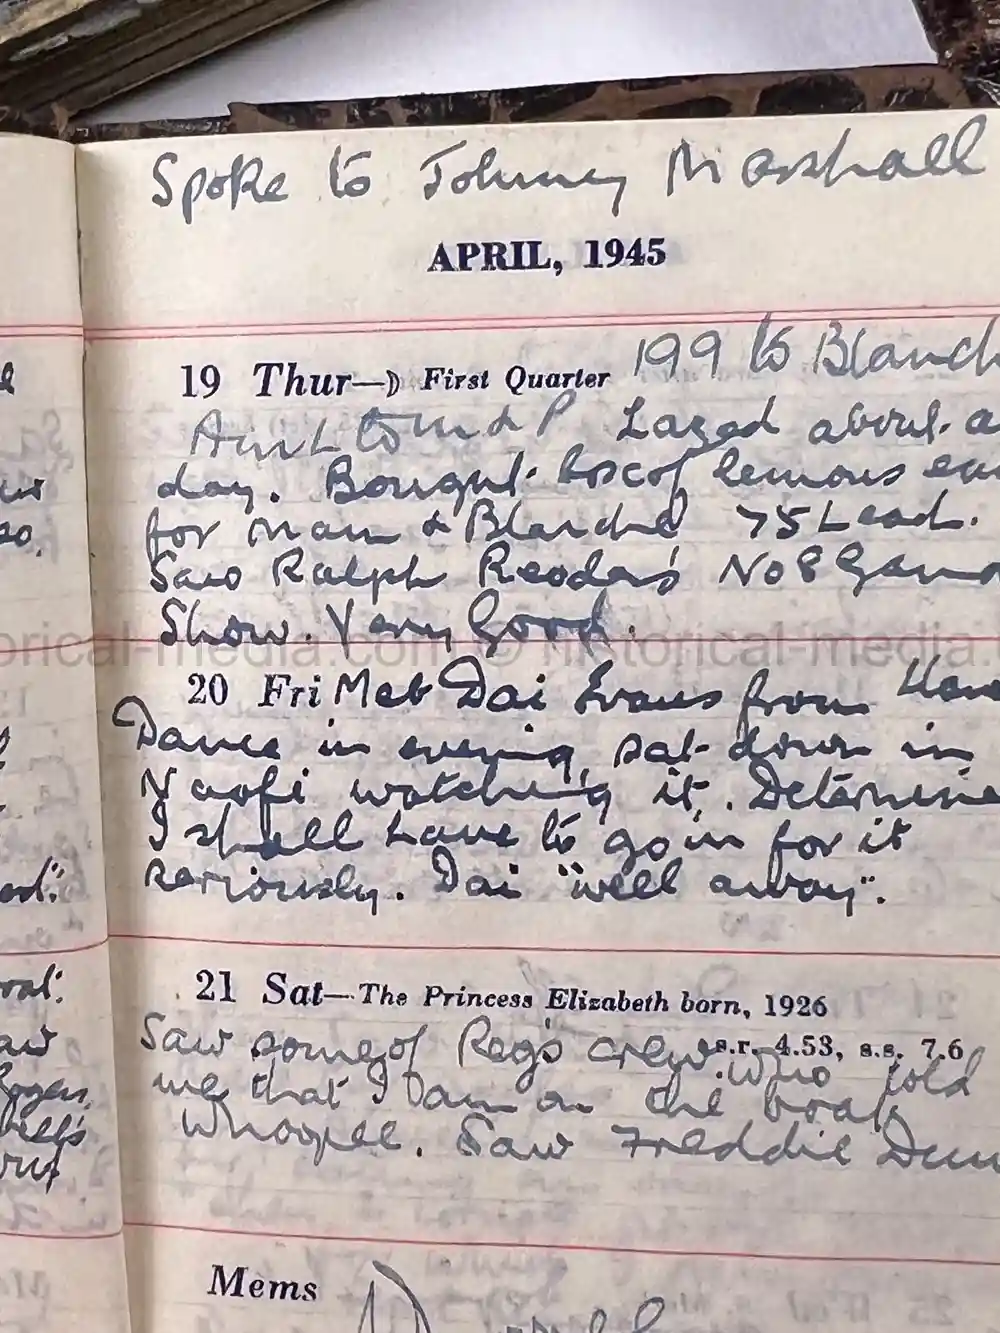 Spoke to Johnny Marshall
APRIL, 1945
19 Thur—☽ First Quarter 199 to Blanch
A to M & P Lazed about a
day. Bought box of lemons
for Mam & Blanche 75 Lead.
Saw Ralph Reader's No 8 Gang
Show. Very Good.
historical-media.com © historical-media.
20 Fri Met Dai Evans from
Dance in evening, sat down in
Naafi watching it. Determine
I shall have to go in for it
seriously. Dai "well away".
21 Sat—The Princess Elizabeth born, 1926
s.r. 4.53, s.s. 7.6
Saw some of Reg's crew who told
me that I am on the boat
Whoopee. Saw Freddie
Mems